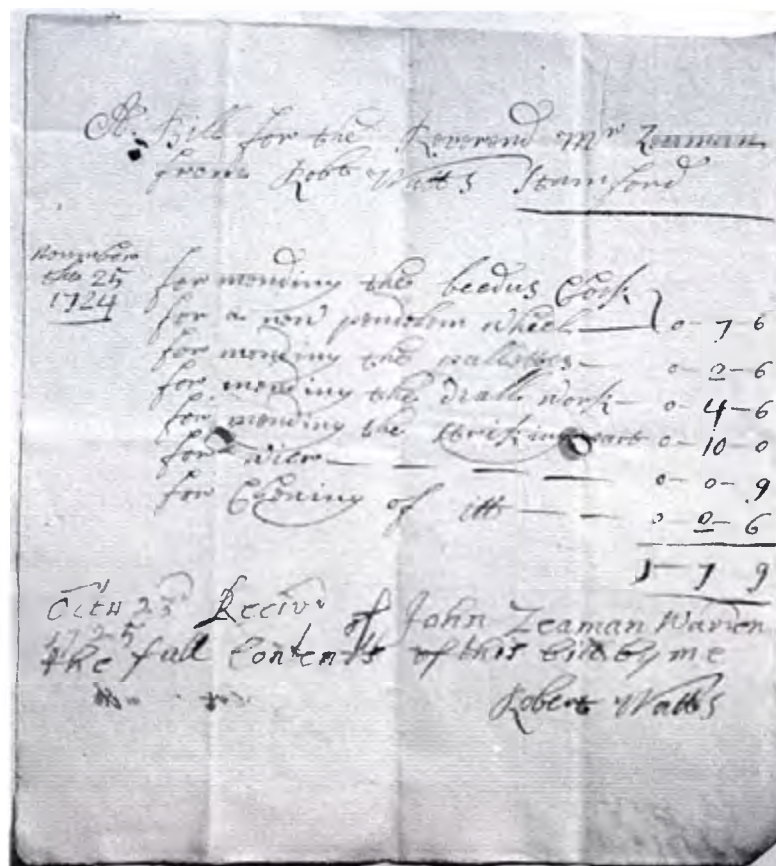 A Bill for the Reverend Mr Zeaman
from Robt Watts Stamford
November
the 25
1724
for mending the beedus Clock
for a new pendelem wheel — 0 - 7 6
for mending the pallettes — 0 - 0 - 6
for mending the Diall work — 0 - 4 - 6
for mending the strikin part 0 - 10 - 0
for wier — — — — 0 - 0 - 9
for Clening of itt — — 0 - 0 - 6
1 - 7 9
23 Receivd of John Zeaman Warden
1725
the full Contents of this bill by me
Robert Watts